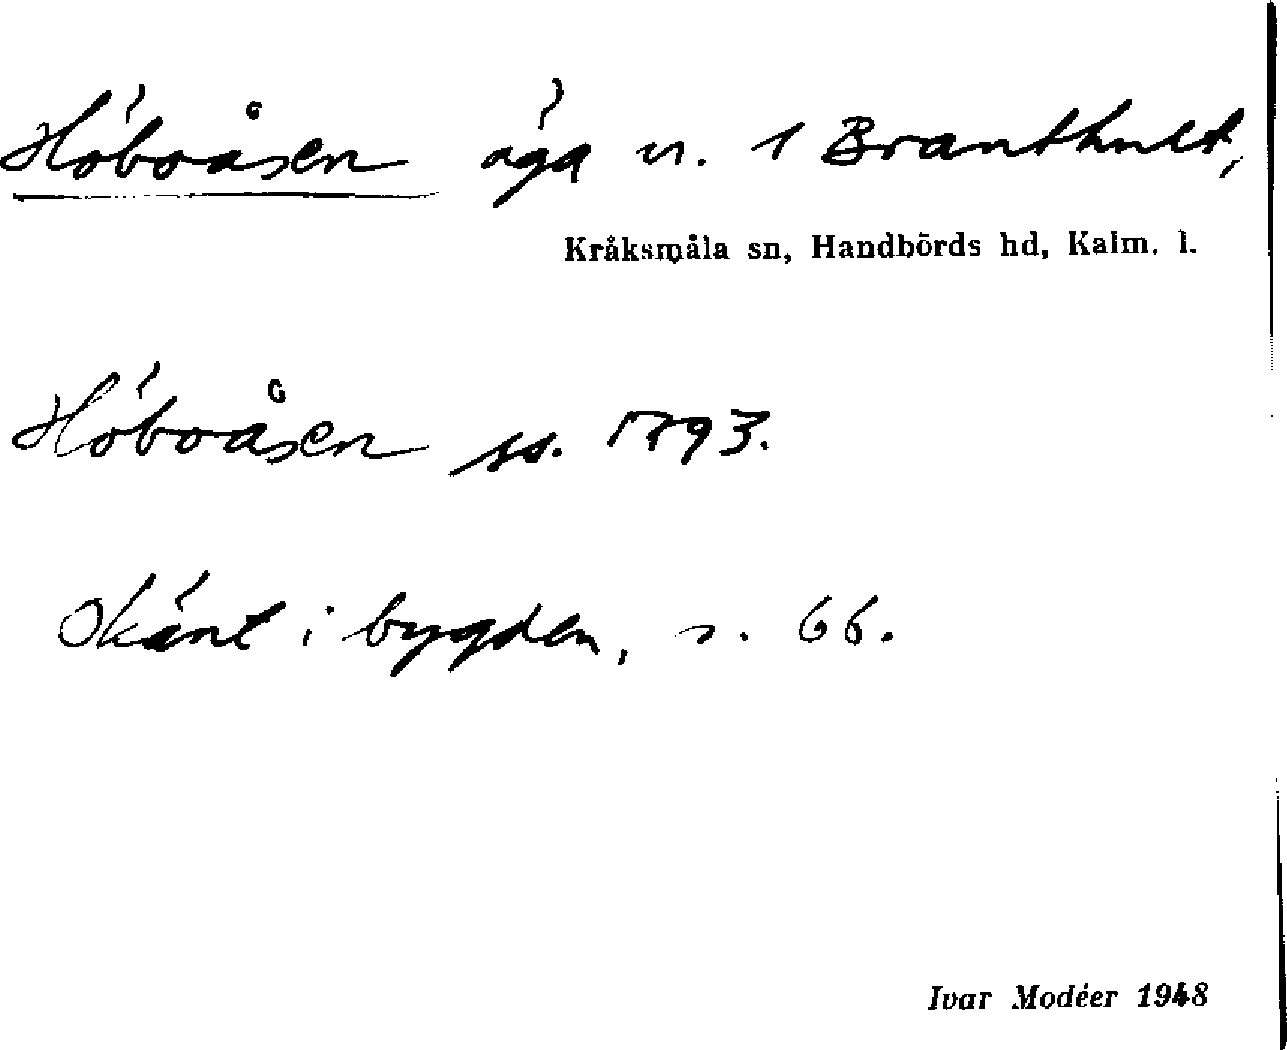 Höboåsen äga n. 1 Branthult,
Kråksmåla sn, Handbörds hd, Kalm. l.
Höboåsen ss. 1793.
Okänt i bygden, s. 66.
Ivar Modéer 1948